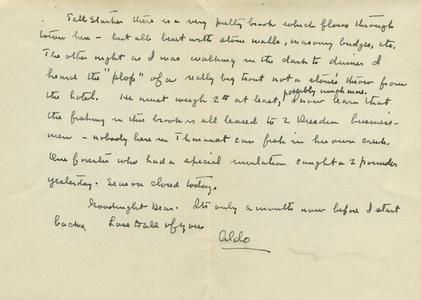 Tell Starker there is a very pretty brook which flows through
town here - but all beset with stone walls, masonry bridges, etc.
The other night as I was walking in the dark to dinner I
heard the "plop" of a really big trout not a stone's throw from
the hotel. He must weigh 2# at least, possibly much more. I now learn that
the fishing in this brook is all leased to 2 Dresden business-
men - nobody here in Tharandt can fish in his own creek.
One forester who had a special invitation caught a 2 pounder
yesterday. Season closed today.
Goodnight dear. It's only a month now before I start
back. Love to all of you
Aldo